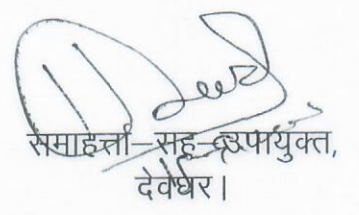 समाहर्त्ता-सह-उपायुक्त,
देवघर।